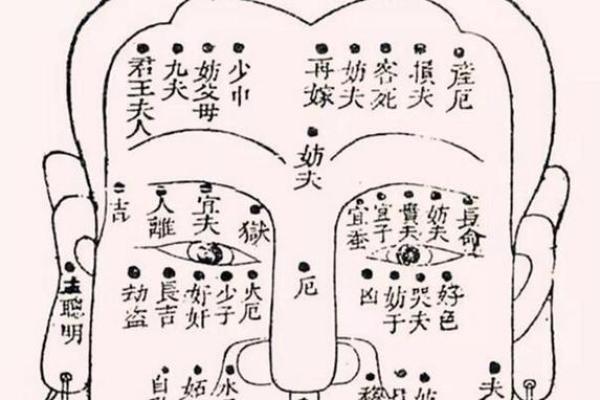 産厄
損夫
客死
妨夫
再嫁
少巾
妨父母
九夫
君王夫人
妨夫
長命
妨夫
賣夫
宜子
宜蚕
獄
宜夫
人離
吉
好色
哭夫
妨子
凶
厄
火厄
少子
奸奸
長吉
劫盗
主聰明
夫